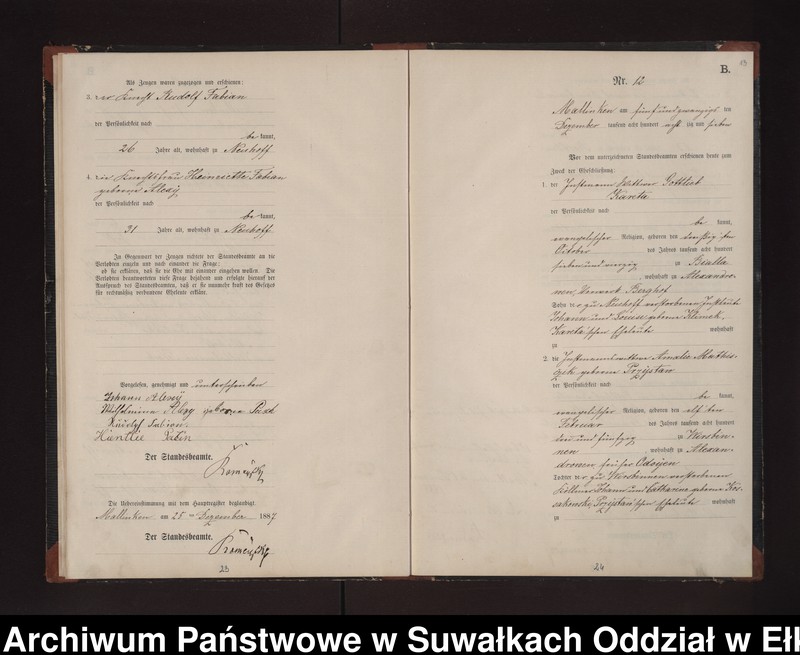 Als Zeugen waren zugezogen und erschienen:
3. der Knecht Rudolf Fabian
der Persönlichkeit nach
be kannt,
26 Jahre alt, wohnhaft zu Neuhoff
4. die Knechtsfrau Henriette Fabian
geborene Alexy
der Persönlichkeit nach
be kannt,
31 Jahre alt, wohnhaft zu Neuhoff
In Gegenwart der Zeugen richtete der Standesbeamte an die
Verlobten einzeln und nach einander die Frage:
ob sie erklären, daß sie die Ehe mit einander eingehen wollen. Die
Verlobten beantworteten diese Frage bejahend und erfolgte hierauf der
Ausspruch des Standesbeamten, daß er sie nunmehr kraft des Gesetzes
für rechtmäßig verbundene Eheleute erkläre.
Vorgelesen, genehmigt und unterschrieben
Johann Alexy
Wilhelmine Alexy geborne
Rudolph Fabian
Fabin
Der Standesbeamte.
Die Uebereinstimmung mit dem Hauptregister beglaubigt.
Mallinken am 25 ten Dezember 1887
Der Standesbeamte.
23
B.
Nr. 12
Mallinken am fünfundzwanzigs ten
Dezember tausend acht hundert acht zig und sieben
Vor dem unterzeichneten Standesbeamten erschienen heute zum
Zweck der Eheschließung:
1. der Instmann Wittwer Gottlieb
Kareta
der Persönlichkeit nach
be kannt,
evangelischer Religion, geboren den dreißig sten
October des Jahres tausend acht hundert
siebenundvierzig zu Bialla
, wohnhaft zu Alexandro-
nen, Vorwerk Berghof
Sohn der zu Neuhoff verstorbenen Instleute
Johann und Louise geborene Klimek,
Kareta'schen Eheleute wohnhaft
zu
2. die Instmannswittwe Amalie Mathis-
zek geborene Przystaw
der Persönlichkeit nach
be kannt,
evangelischer Religion, geboren den elf ten
Februar des Jahres tausend acht hundert
drei und fünfzig zu Worbin-
nen , wohnhaft zu Alexan-
dronen früher Odoyen
Tochter der zu Worbinnen verstorbenen
Köllmer Johann und Catharine geborene
Przystaw'schen Eheleute wohnhaft
zu
24
Archiwum Państwowe w Suwałkach Oddział w Ełk